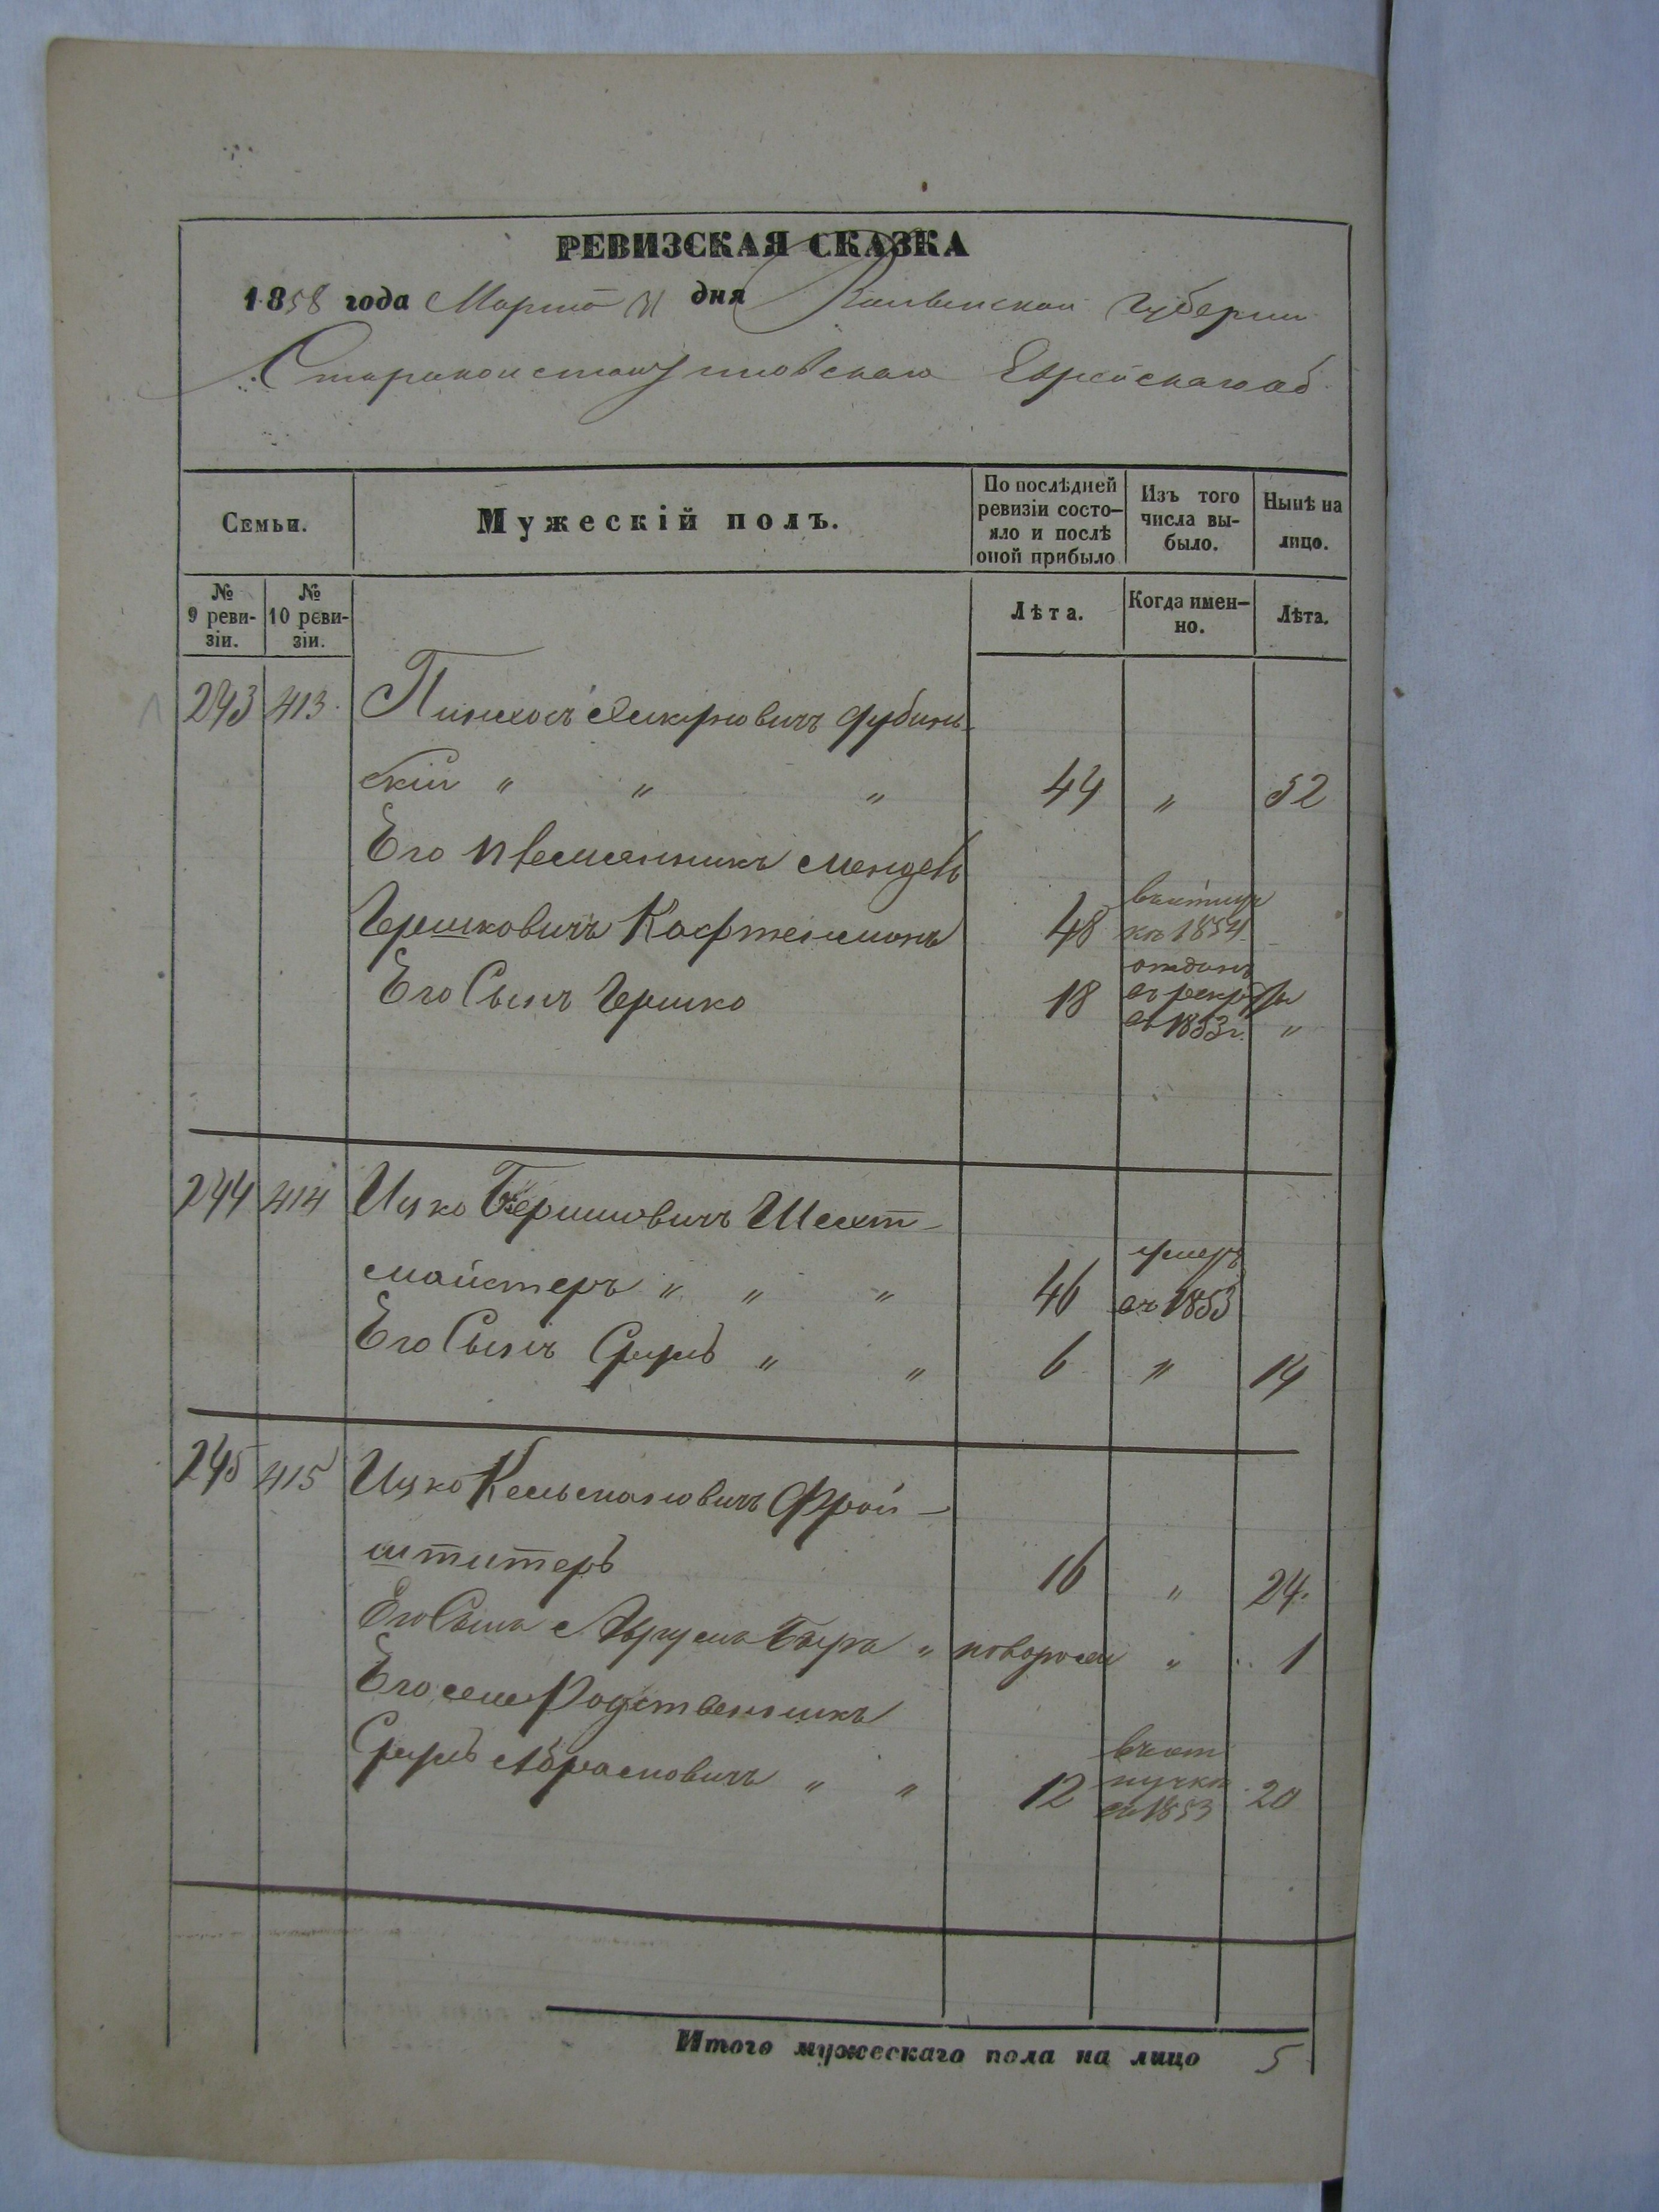 РЕВИЗСКАЯ СКАЗКА
1858 года Марта 31 дня Волынской Губернии
Староконстантиновскаго Еврейскаго об
Семьи.
Мужескій полъ.
По послѣдней ревизіи состо-
яло и послѣ
оной прибыло
Изъ того
числа вы-
было.
Нынѣ на
лицо.
№
9 реви-
зіи.
№
10 реви-
зіи.
Лѣта.
Когда имен-
но.
Лѣта.
243 413 Пинхосъ Дубинъ-
скій " " " 44 " 52
Его племянникъ Мендель
Гершковичъ Кафтенманъ 48 1854
Его Сынъ Гершко 18 отданъ
въ рекруты
въ 1853 г. "
244 414 Ицко Бершковичъ Шехт-
майстеръ " " " 46 умеръ
въ 1853
Его Сынъ Сруль " " 6 " 14
245 415 Ицко Кельмановичъ Фрой-
штетеръ 16 " 24.
Его Сынъ Аврумъ Беръ " новорожд " 1
Его же Родственникъ
Сруль Абрамовичъ " " 12 въ от
лучкѣ
съ 1853 20
Итого мужескаго пола на лицо 5